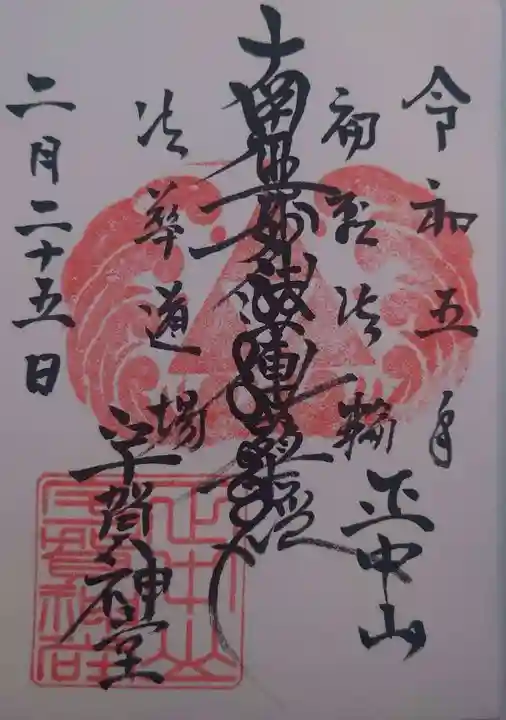 令和五年
初転法輪
正中山
南無妙法蓮華経
法華道場
宇賀神堂
二月二十五日